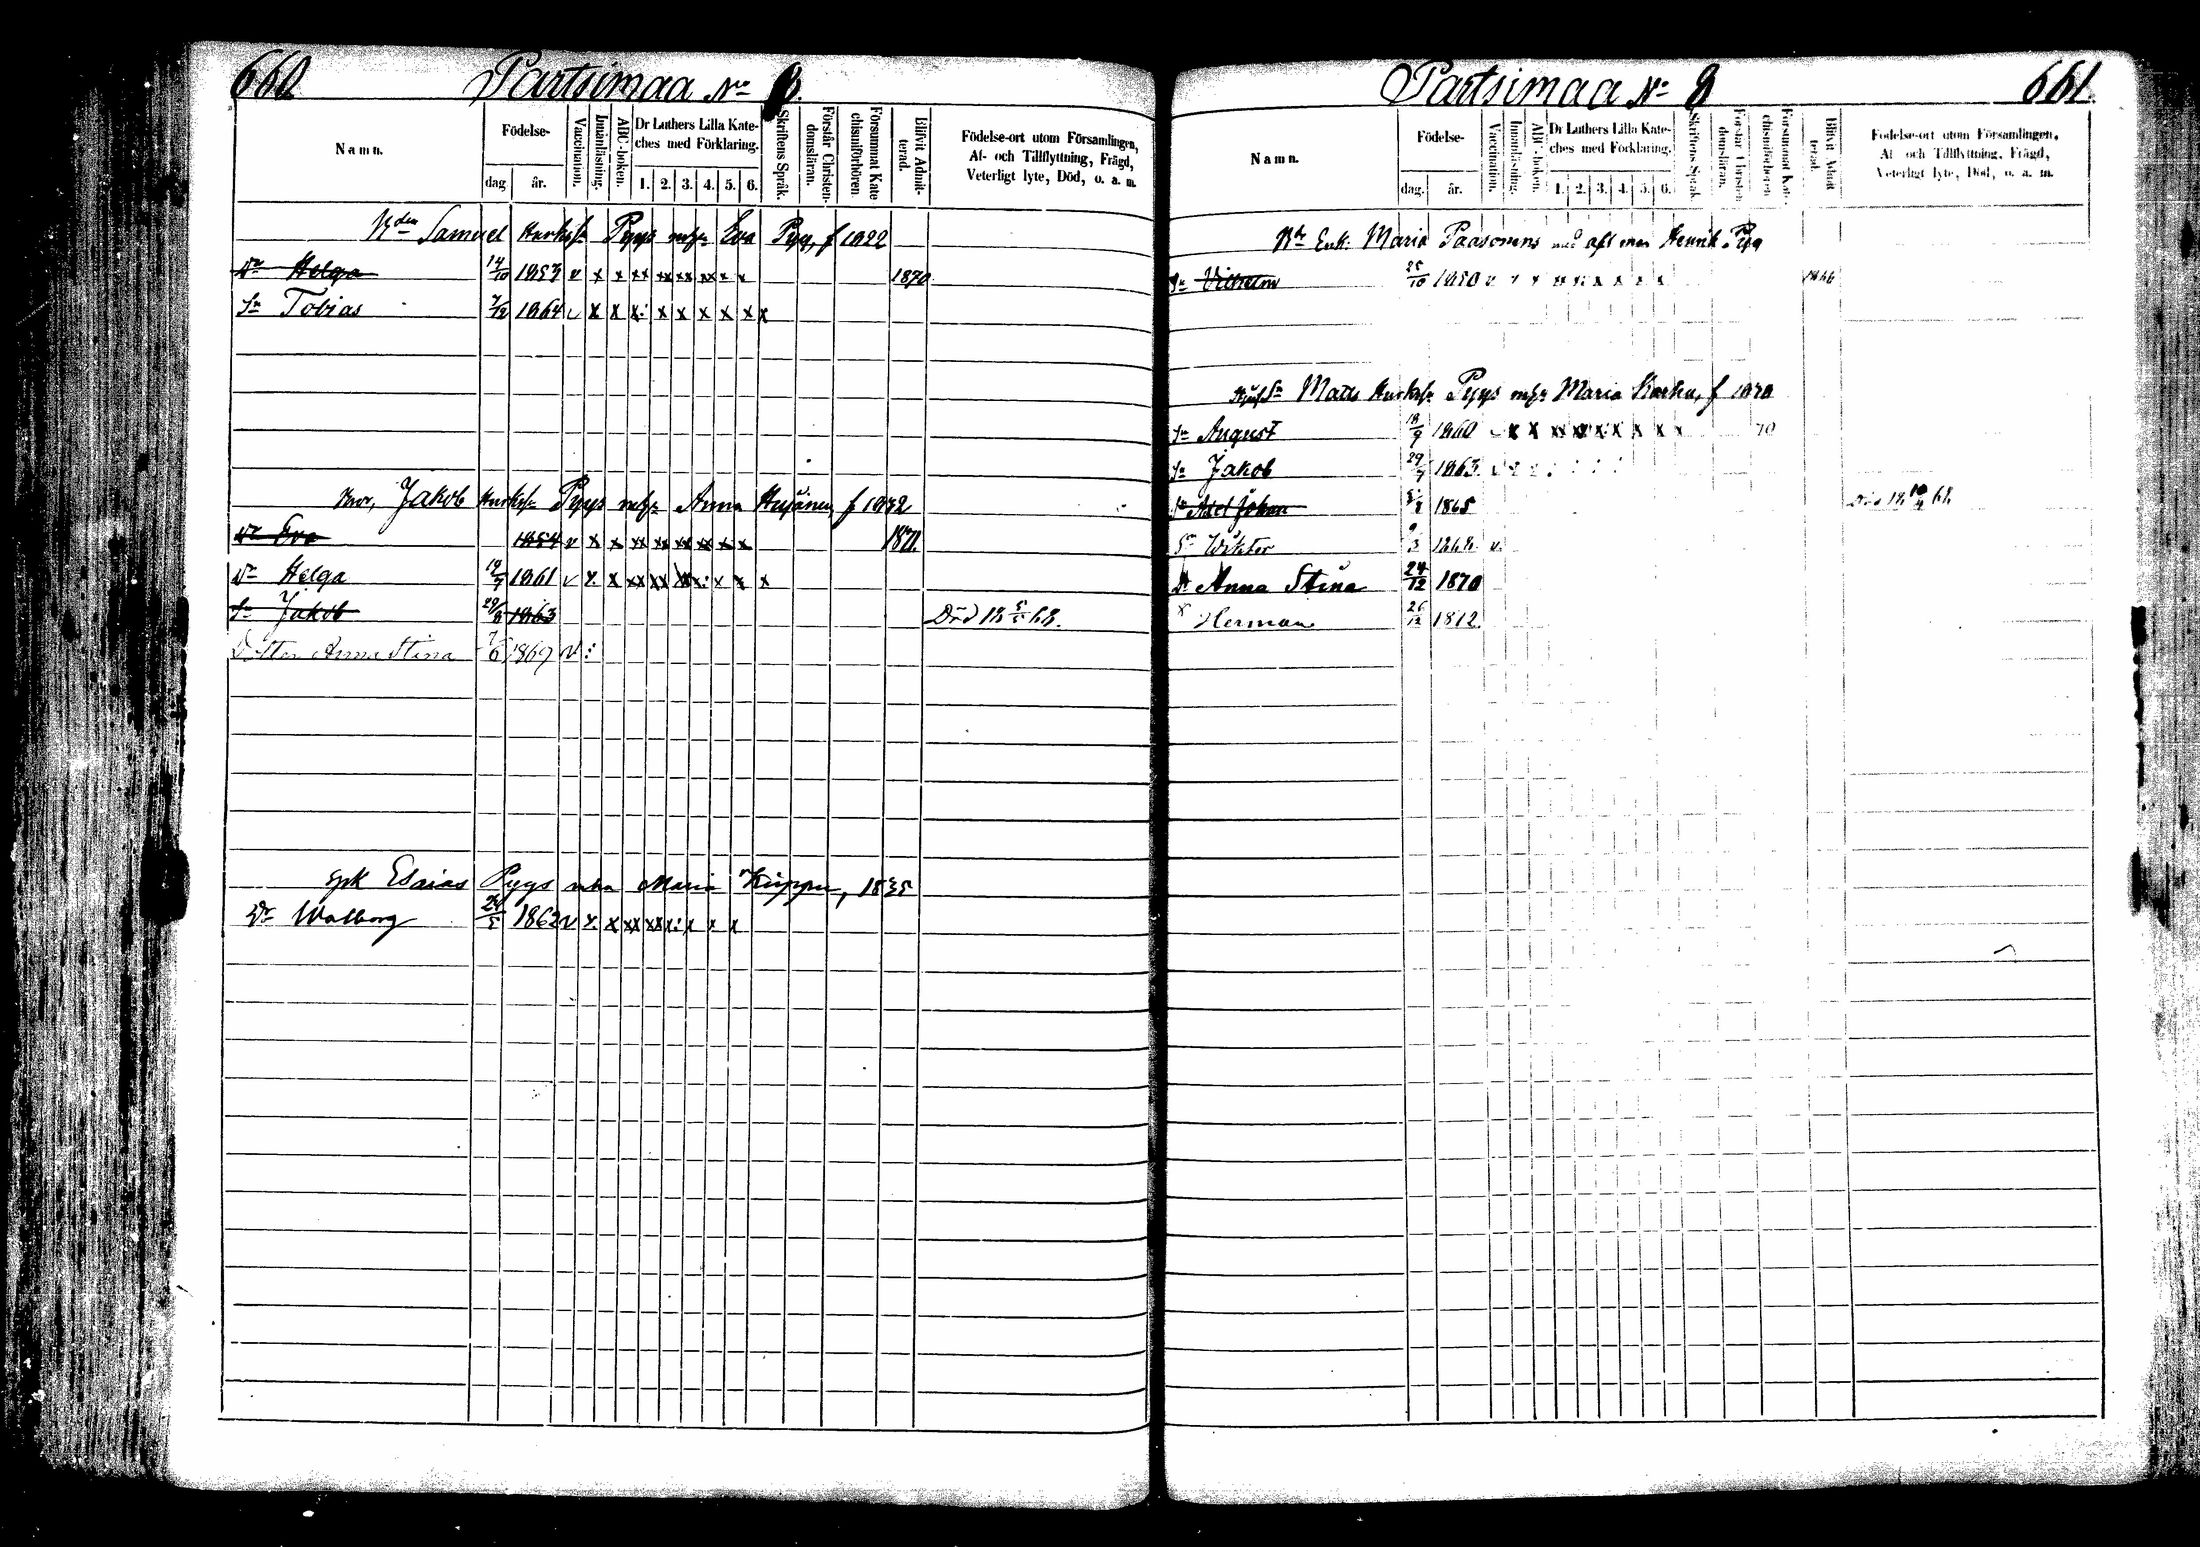 660
Partsimaa No 8.
Namn.
Födelse-
dag
år.
Vaccination.
Innanläsning.
ABC-boken.
Dr Luthers Lilla Kate-
ches med Förklaring.
1. 2. 3. 4. 5. 6.
Skriftens Språk.
Förstår Christen-
domsläran.
Försummat Kate
chismiförhören.
Blifvit Admit-
terad.
Födelse-ort utom Församlingen,
Af- och Tillflyttning, Frägd,
Veterligt lyte, Död, o. a. m.
Samuel Pygs Eva Pyg, f 1822
Dr Helga 14/10 1853 v x x xx xx xx xx x x 1870
Sn Tobias 7/12 1864 v x x x: x x x x x x
Jakob Pygs Anna f 1832
Dr Eva 1854 v x x xx xx xx xx x x 1871.
Dr Helga 1861 v x x xx xx x: x x x
Sn Jakob 29/8 1863 Död 18 5/5 68.
Dotter Anna Stina 7/6 1869 v :
Esaias Pygs Maria 1835
Dr Walborg 24/5 1862 v x x xx xx x: x x x
Partsimaa No 8
661.
Namn.
Födelse-
dag.
år.
Vaccination.
Innanläsning.
ABC-boken.
Dr Luthers Lilla Kate-
ches med Förklaring.
1. 2. 3. 4. 5. 6.
Skriftens Språk.
Förstår Christen-
domsläran.
Försummat Kate-
chismiförhören.
Blifvit Admit
terad.
Födelse-ort utom Församlingen,
Af- och Tillflyttning, Frägd,
Veterligt lyte, Död, o. a. m.
Enk. Maria Paasonens med afl man Henrik Pyg
Sn Vilhelm 25/10 1850 1866
Sn Matts Pygs Maria Karhu, f 1830
Sn August 18/9 1860 v x x xx xx x x x x x 70
Sn Jakob 29/7 1863
Sn Axel Johan 1865 Död 18 10/4 68
Sn Wiktor 9/3 1868 v.
Dr Anna Stina 24/12 1870
Herman 26/12 1872